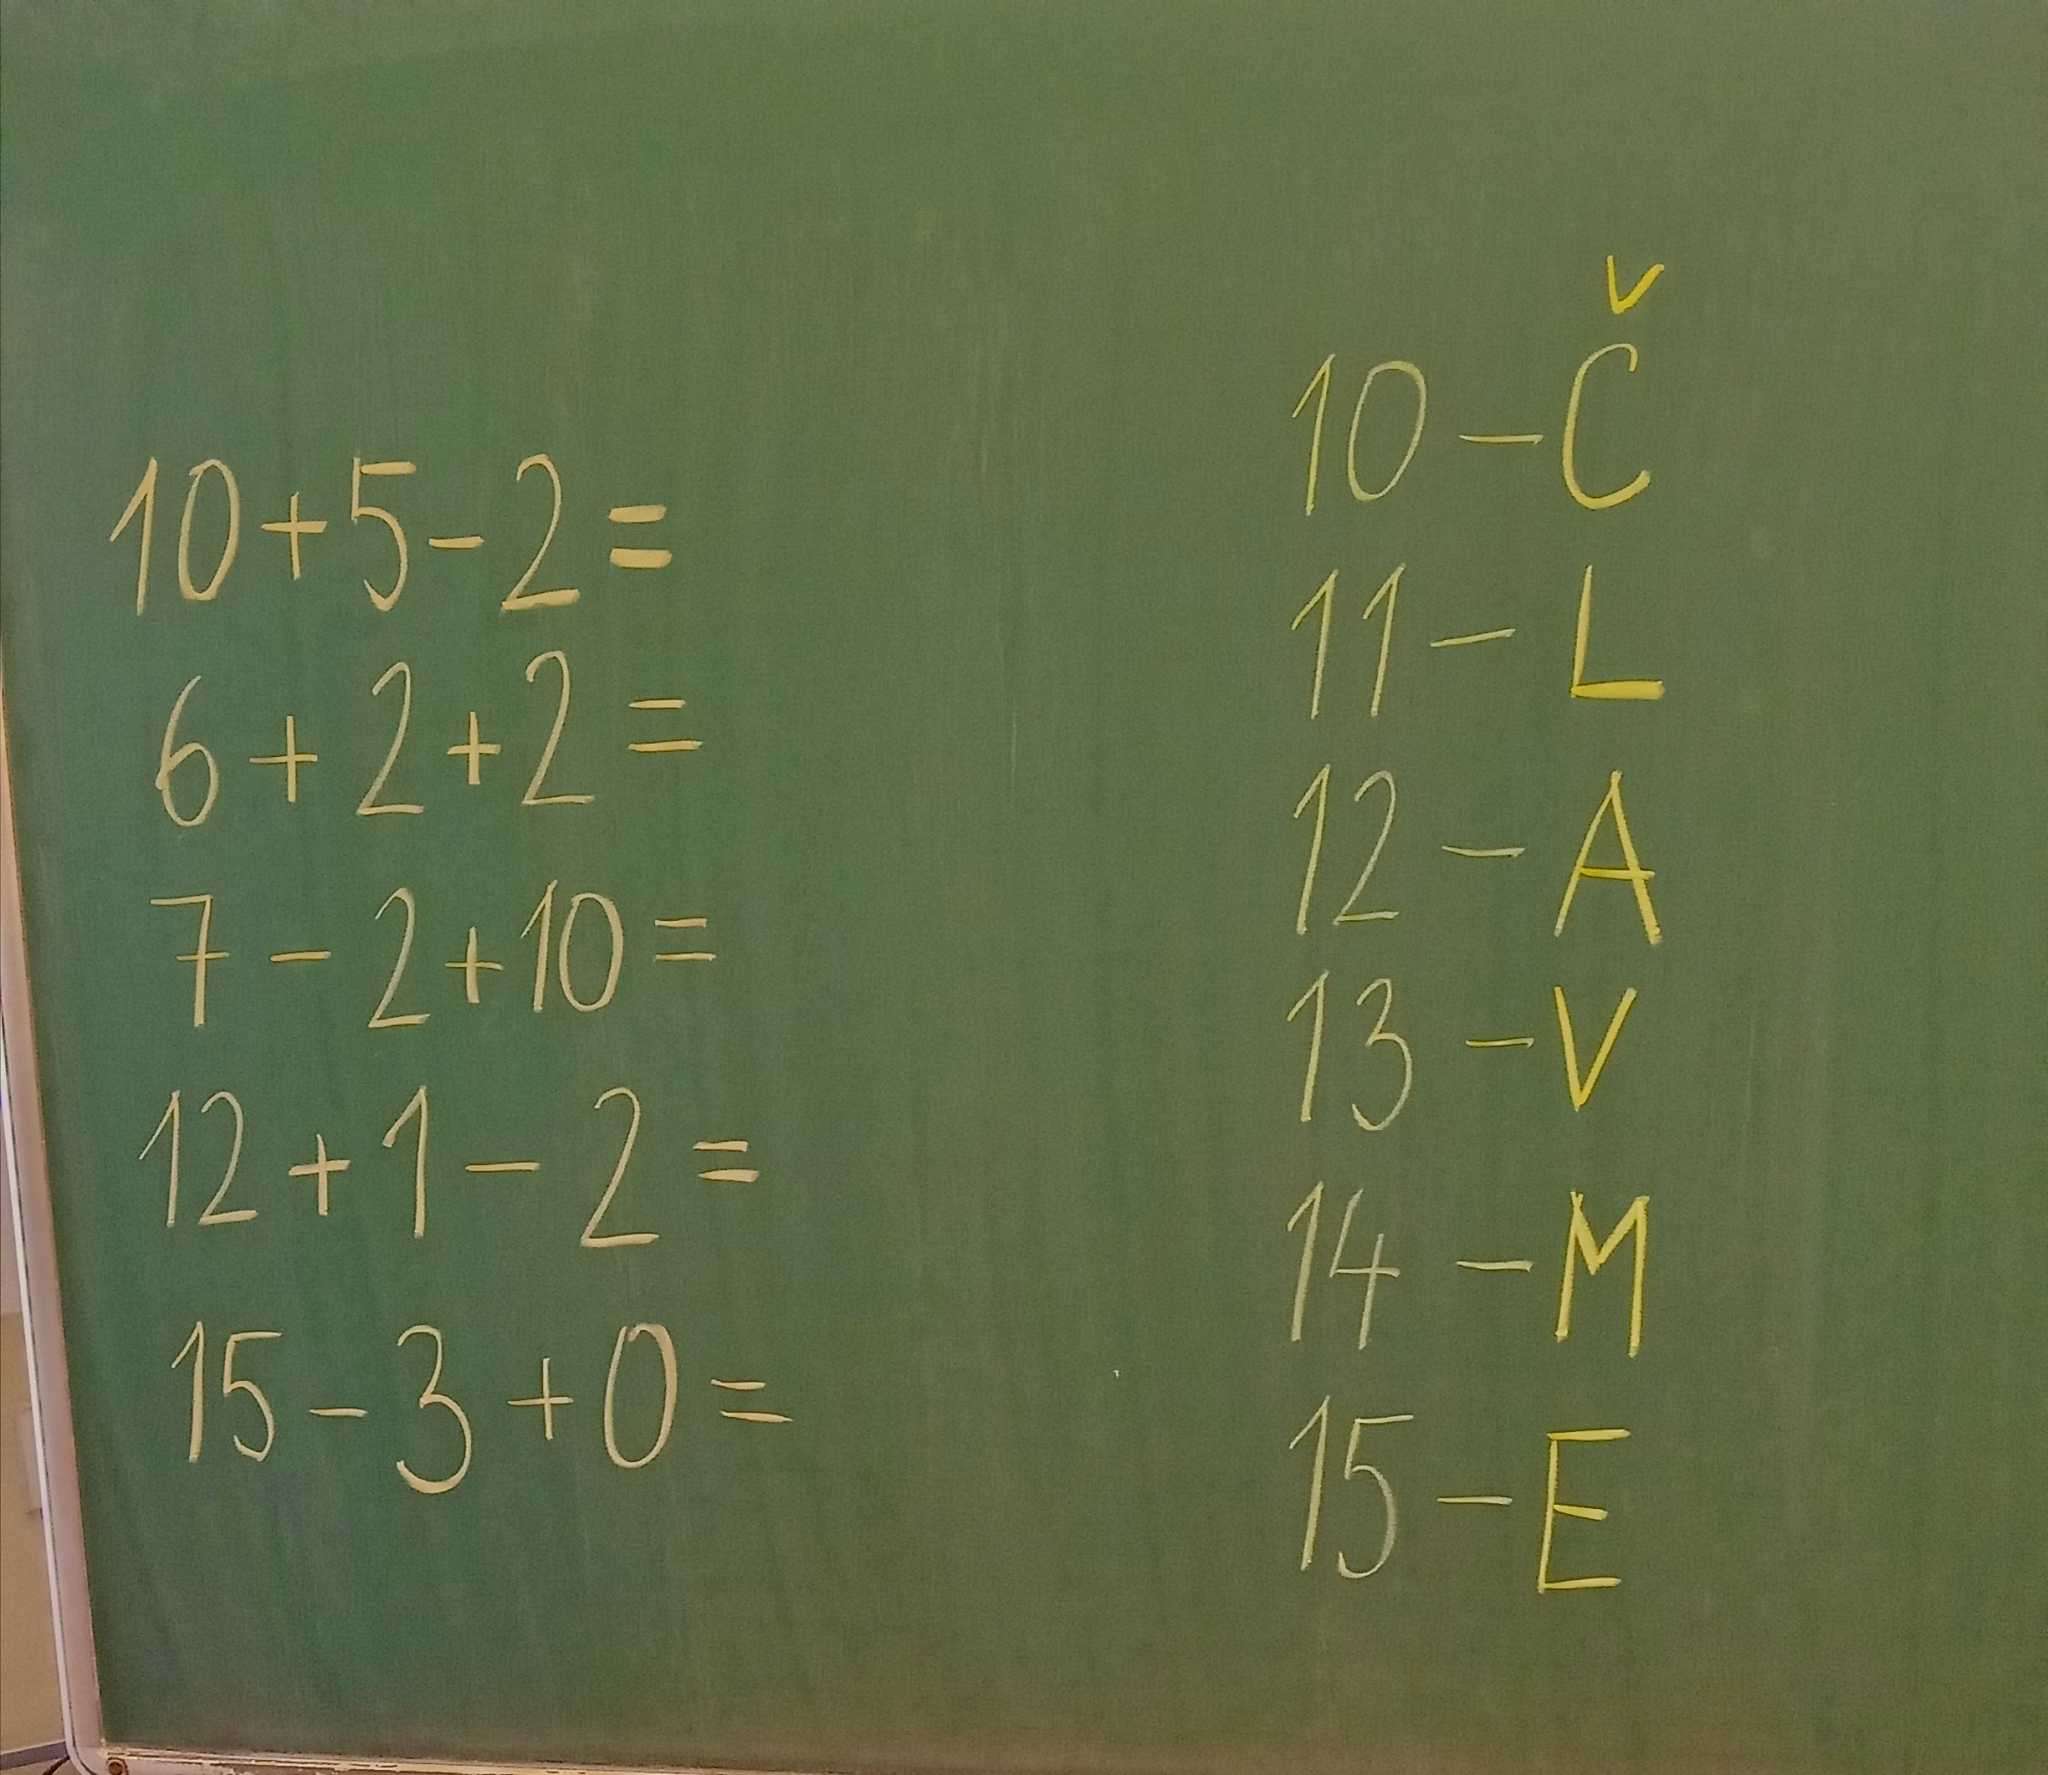 10+5-2=
6+2+2=
7-2+10=
12+1-2=
15-3+0=
10-Č
11-L
12-A
13-V
14-M
15-E